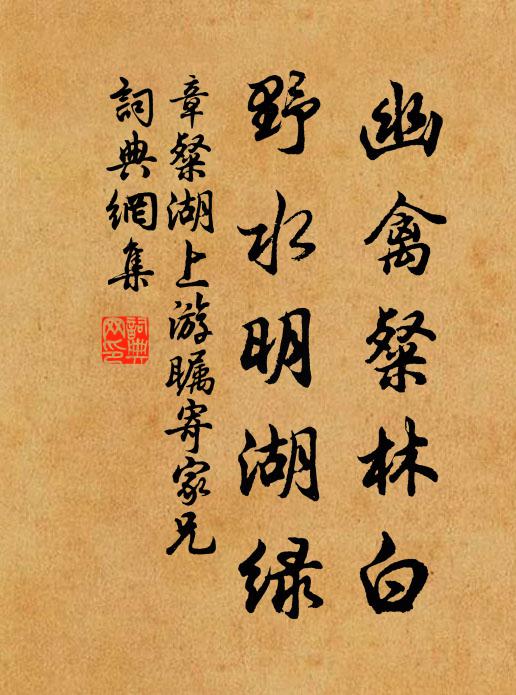 幽禽粲林白
野水明湖绿
章粲湖上游瞩寄家兄
詞典網集
詞典网印